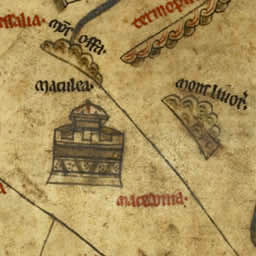 essalia·
mōs offa·
termopil
maculea·
mons liuor.
macedonia·